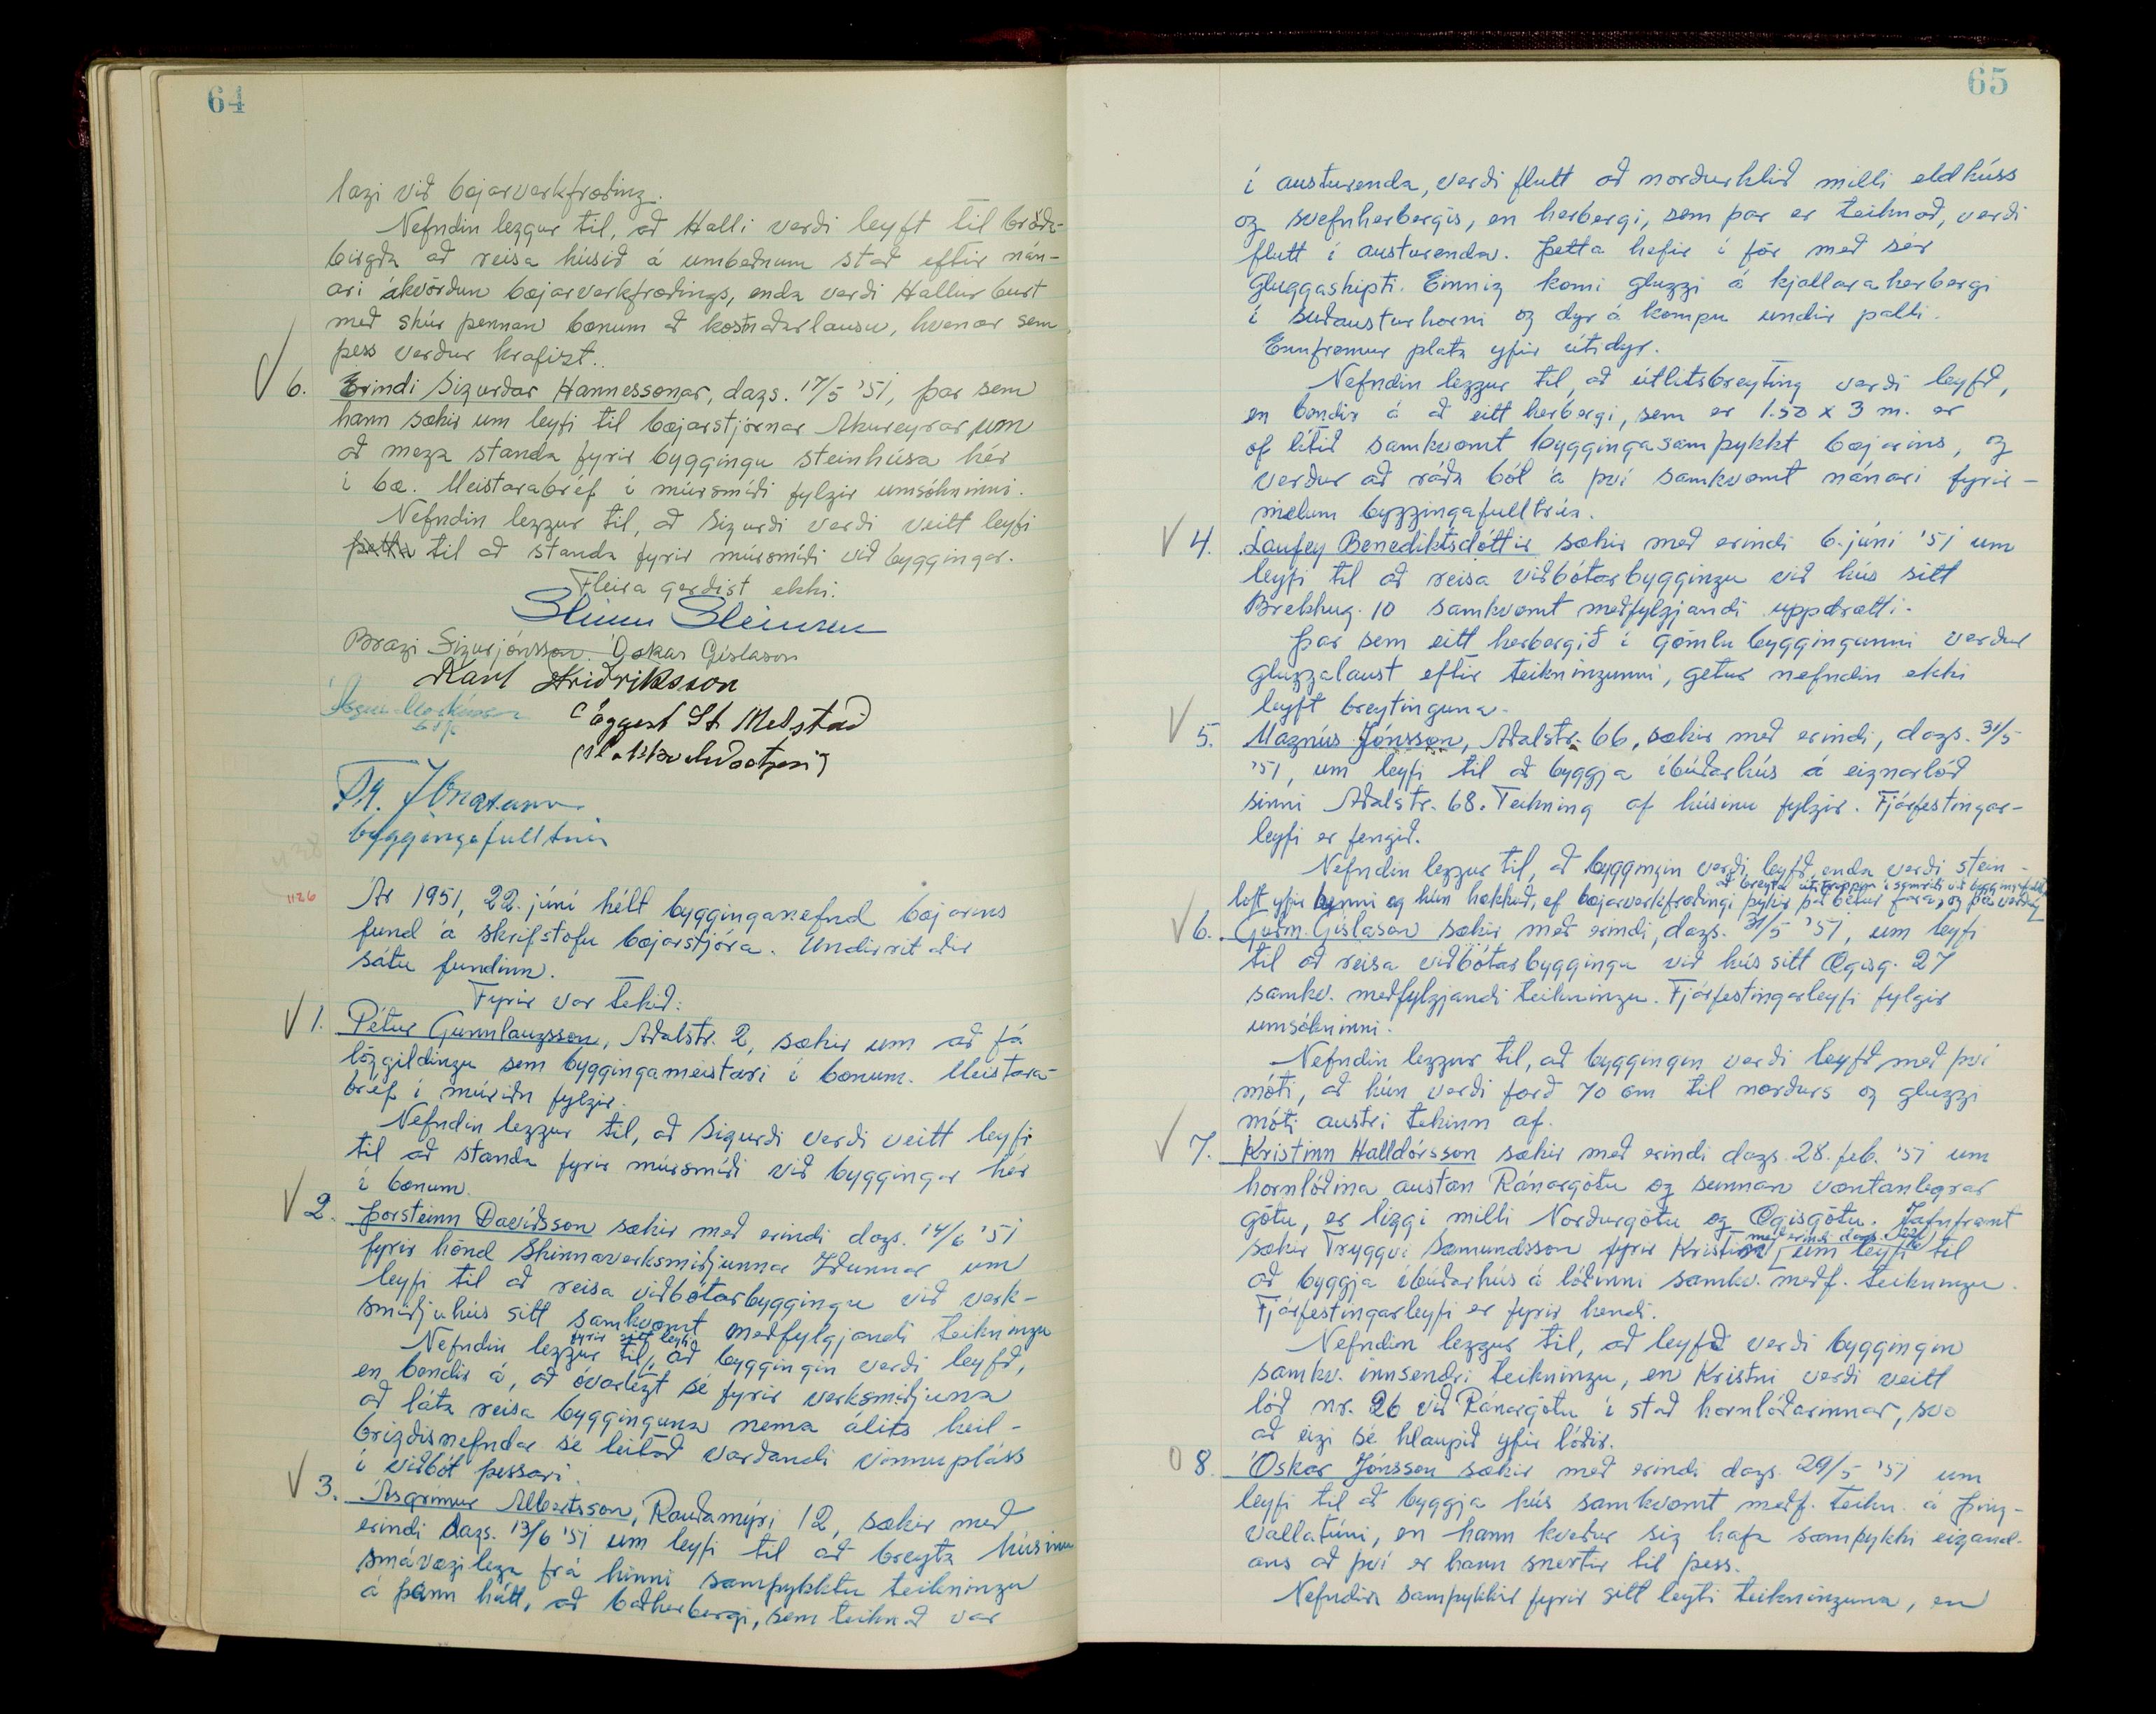 64
lagi við bæjarverkfræðing.
Nefndin leggur til, að Halli verði leyft til bráða-
birgða að reisa húsið á umbeðnum stað eftir nán-
ari ákvörðun bæjarverkfræðings, enda verði Hallur burt
með skúr þennan bænum að kostnaðarlausu, hvenær sem
þess verður krafizt.
6. Erindi Sigurðar Hannessonar, dags. 17/5 '51, þar sem
hann sækir um leyfi til bæjarstjórnar Akureyrar um
að mega standa fyrir byggingu steinhúsa hér
í bæ. Meistarabréf í múrsmíði fylgir umsókninni.
Nefndin leggur til, að Sigurði verði veitt leyfi
til að standa fyrir múrsmíði við byggingar.
Fleira gerðist ekki.
Steinn Steinsen
Bragi Sigurjónsson. Gaskar Gíslason
Karl Friðriksson
Eggert St Melstað
(Slökkviliðsstjóri)
Tr. Jónatansson
byggingafulltrúi
1126
Ár 1951, 22. júní hélt bygginganefnd bæjarins
fund á skrifstofu bæjarstjóra. Undirritaðir
sátu fundinn.
Fyrir var tekið:
1. Pétur Gunnlaugsson, Aðalstr. 2, sækir um að fá
löggildingu sem byggingameistari í bænum. Meistara-
bréf í múriðn fylgir.
Nefndin leggur til, að Sigurði verði veitt leyfi
til að standa fyrir múrsmíði við byggingar hér
í bænum.
2. Þorsteinn Davíðsson sækir með erindi dags. 14/6 '51
fyrir hönd Skinnaverksmiðjunnar Iðunnar um
leyfi til að reisa viðbótarbyggingu við verk-
smiðjuhús sitt samkvæmt meðfylgjandi teikningu
fyrir sitt leyti
Nefndin leggur til, að byggingin verði leyfð,
en bendir á, að óvarlegt sé fyrir verksmiðjuna
að láta reisa bygginguna nema álits heil-
brigðisnefndar sé leitað varðandi vinnupláss
í viðbót þessari.
3. Ásgrímur Albertsson, Rauðamýri 12, sækir með
erindi dags. 13/6 '51 um leyfi til að breyta húsinu
smávægilega frá hinni samþykktu teikningu
á þann hátt, að baðherbergi, sem teiknað var
65
í austurenda, verði flutt að norðurhlið milli eldhúss
og svefnherbergis, en herbergi, sem þar er teiknað, verði
flutt í austurenda. Þetta hefir í för með sér
gluggaskipti. Einnig komi gluggi á kjallaraherbergi
í suðausturhorni og dyr á kompu undir palli.
Ennfremur plata yfir útidyr.
Nefndin leggur til, að útlitsbreyting verði leyfð,
en bendir á að eitt herbergi, sem er 1.50 x 3 m. er
of lítið samkvæmt byggingasamþykkt bæjarins, og
verður að ráða ból á því samkvæmt nánari fyrir-
mælum byggingafulltrúa.
4. Laufey Benediktsdóttir sækir með erindi 6. júní '51 um
leyfi til að reisa viðbótarbyggingu við hús sitt
Brekkug. 10 samkvæmt meðfylgjandi uppdrætti.
Þar sem eitt herbergið í gömlu byggingunni verður
gluggalaust eftir teikningunni, getur nefndin ekki
leyft breytinguna.
5. Magnús Jónsson, Aðalstr. 66, sækir með erindi, dags. 31/5
'51, um leyfi til að byggja íbúðarhús á eignarlóð
sinni Aðalstr. 68. Teikning af húsinu fylgir. Fjárfestingar-
leyfi er fengið.
Nefndin leggur til, að byggingin verði leyfð, enda verði stein-
að breyta útitröppum í samráði við byggingafulltr.
loft yfir henni og hún lækkuð, ef bæjarverkfræðingi þykir það betur fara, og þá verði
6. Guðm. Gíslason sækir með erindi, dags. 31/5 '51, um leyfi
til að reisa viðbótarbyggingu við hús sitt Ægisg. 27
samkv. meðfylgjandi teikningu. Fjárfestingarleyfi fylgir
umsókninni.
Nefndin leggur til, að byggingin verði leyfð með því
móti, að hún verði færð 70 cm til norðurs og gluggi
móti austri tekinn af.
7. Kristinn Halldórsson sækir með erindi dags. 28. feb. '51 um
hornlóðina austan Ránargötu og sunnan væntanlegrar
götu, er liggi milli Norðurgötu og Ægisgötu. Jafnframt
með erindi dags.
sækir Tryggvi Sæmundsson fyrir Kristin um leyfi til
að byggja íbúðarhús á lóðinni samkv. meðf. teikningu.
Fjárfestingarleyfi er fyrir hendi.
Nefndin leggur til, að leyfð verði byggingin
samkv. innsendri teikningu, en Kristni verði veitt
lóð nr. 26 við Ránargötu í stað hornlóðarinnar, svo
að eigi sé hlaupið yfir lóðir.
8. Óskar Jónsson sækir með erindi dags. 29/5 '51 um
leyfi til að byggja hús samkvæmt meðf. teikn. á Þing-
vallatúni, en hann kveður sig hafa samþykki eigand-
ans að því er hann snertir til þess.
Nefndin samþykkir fyrir sitt leyti teikninguna, en